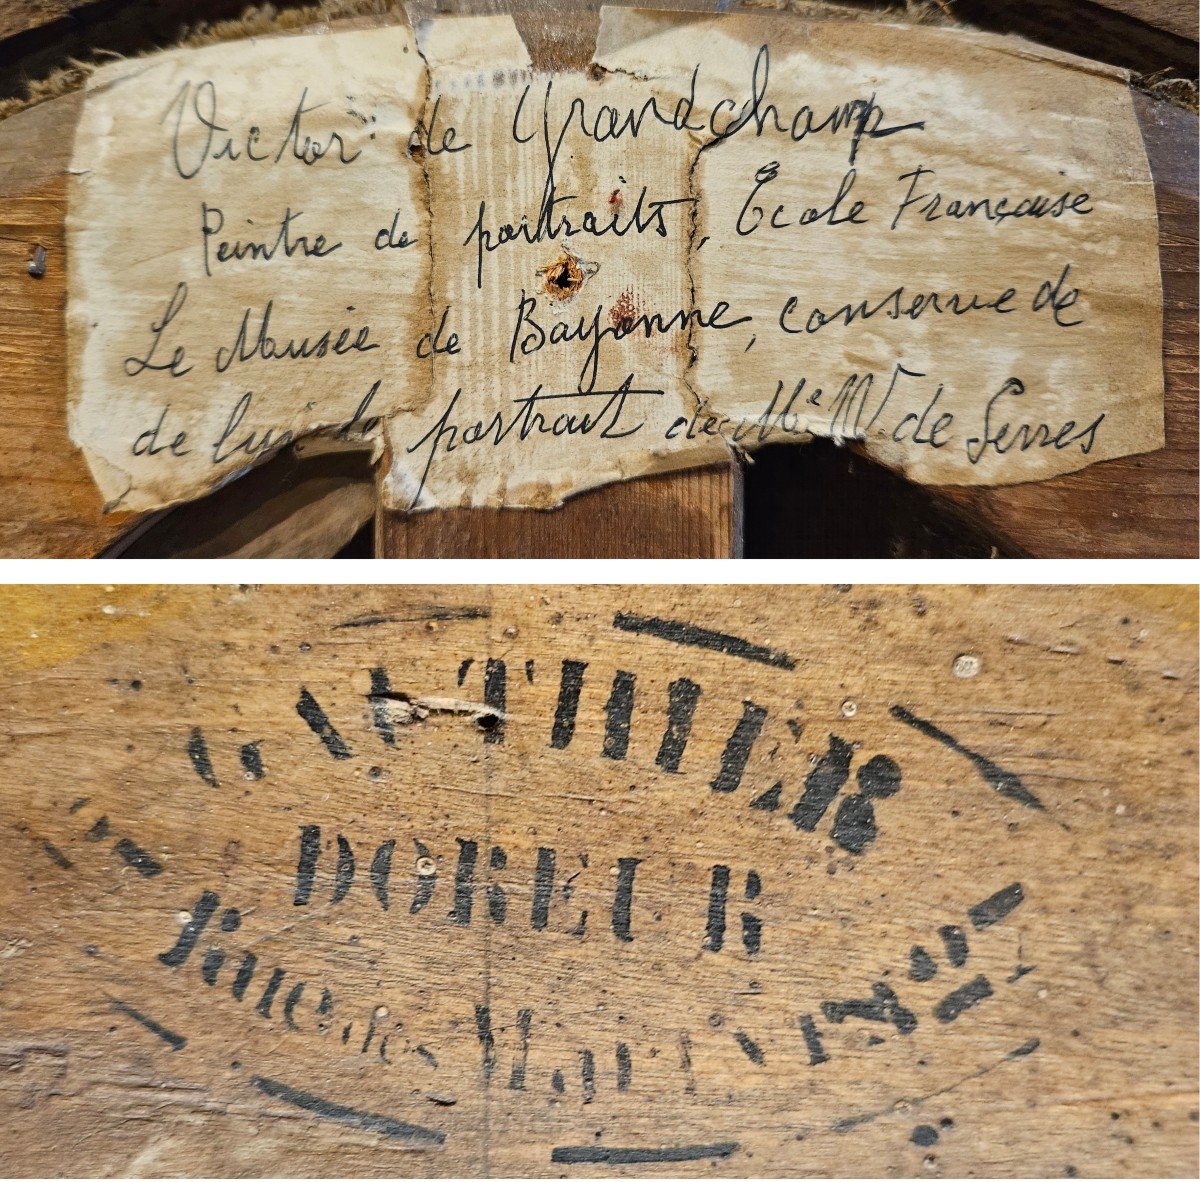 Victor de Grandchamp
Peintre de portraits, École Française
Le Musée de Bayonne, conserve de
de lui le portrait de Me W. de Serres
DOREUR
Rue des